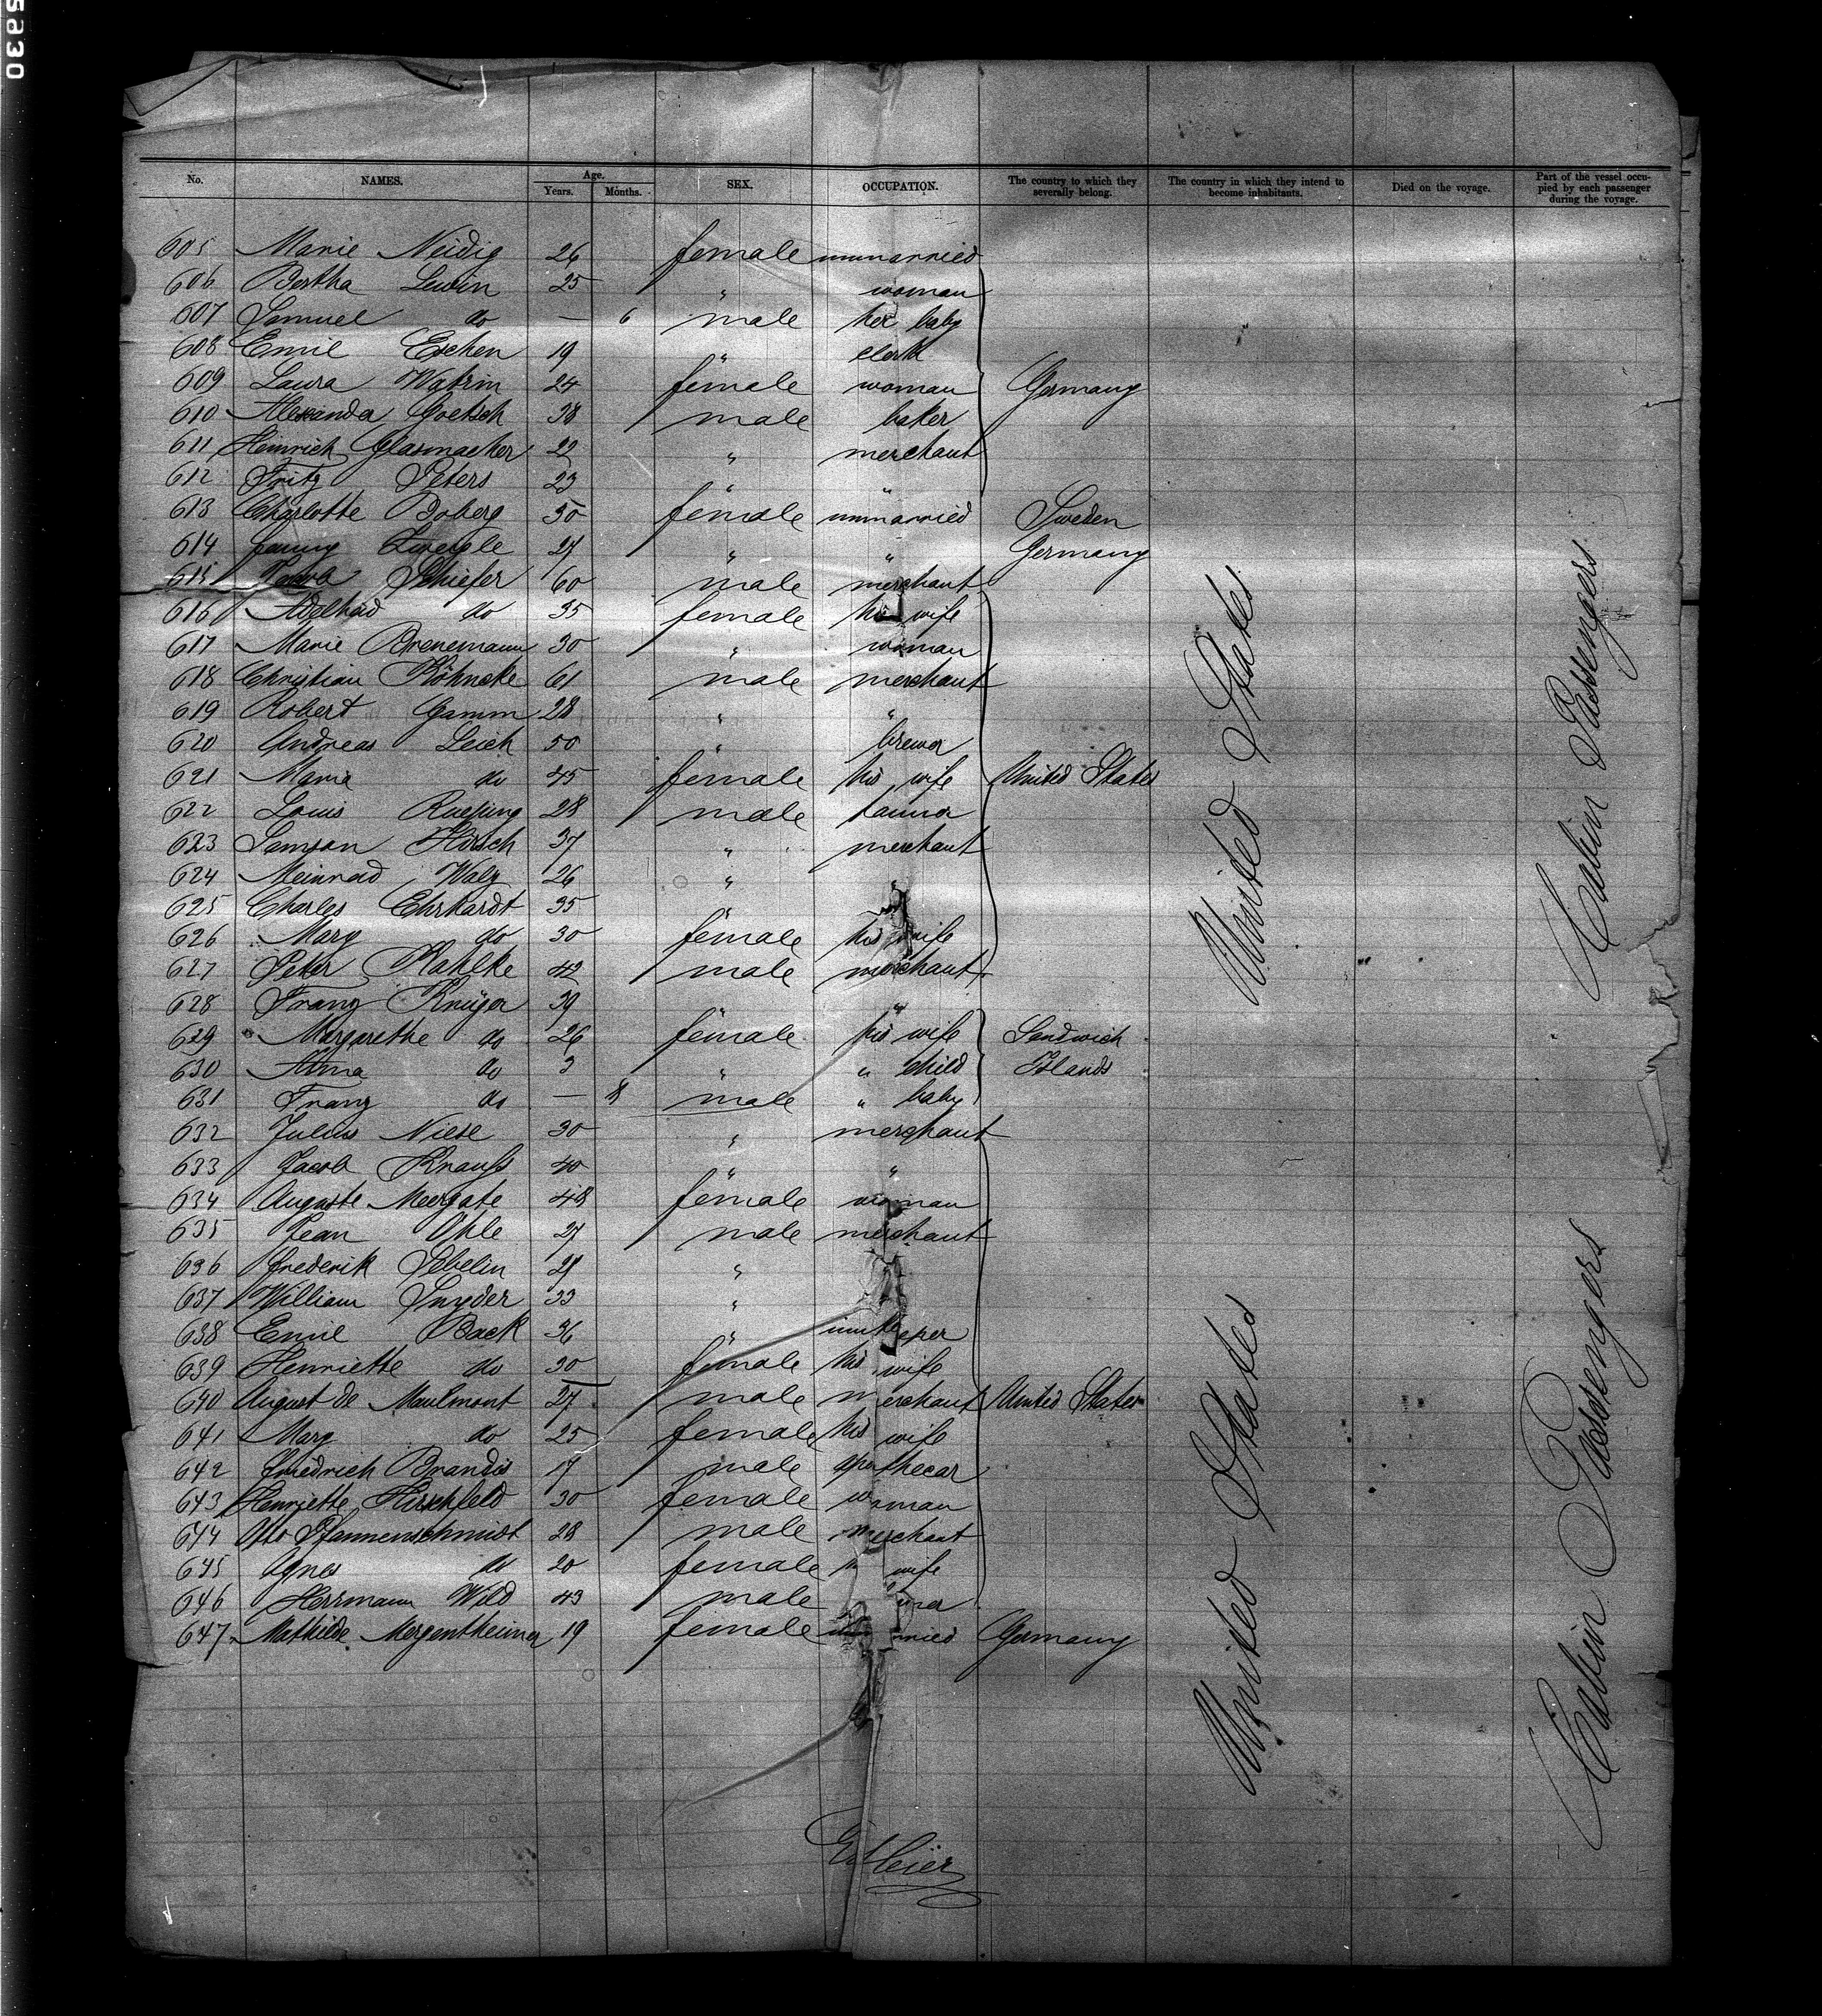 No. NAMES. Age. Years. Months. SEX. OCCUPATION. The country to which they severally belong. The country in which they intend to become inhabitants. Died on the voyage. Part of the vessel occupied by each passenger during the voyage.
605 Marie Neidig 26 female unmarried
606 Bertha Lewin 25 " woman
607 Samuel do — 6 male her baby
608 Emil Eschen 19 " clerk
609 Laura Watrin 24 female woman Germany
610 Alexander Goetsch 38 male baker
611 Heinrich Glasmacher 22 " merchant
612 Fritz Peters 23 " "
613 Charlotte Boberg 30 female unmarried Sweden
614 Fanny 27 " " Germany
615 Jacob Schiefer 60 male merchant
616 Adelheid do 35 female his wife
617 Marie Brenemann 30 " woman
618 Christian Köhncke 61 male merchant
619 Robert Gamm 28 " "
620 Andreas Leich 50 " brewer
621 Maria do 45 female his wife United States
622 Louis Ruesing 28 male
623 Samson Hirsch 37 " merchant
624 Meinrad Walz 26 " "
625 Charles Ehrhardt 35 "
626 Mary do 30 female his wife
627 Peter Kahlke 42 male merchant
628 Franz Krüger 39 " "
629 Margarethe do 26 female his wife Sandwich
630 Alma do 3 " " child Islands
631 Franz do — 8 male " baby
632 Julius Niese 30 " merchant
633 Jacob Krauss 40 " "
634 Auguste Meergate 48 female woman
635 Jean Ohle 27 male merchant
636 Frederik Sebelin 29 "
637 William Snyder 33 "
638 Emil Back 36 " innkeeper
639 Henriette do 30 female his wife
640 August de Maulmont 27 male merchant United States
641 Mary do 25 female his wife
642 Friedrich Brandis 17 male apothecar
643 Henriette Hirschfeld 30 female woman
644 Otto Pfannenschmidt 28 male merchant
645 Agnes do 20 female wife
646 Herrmann Wild 43 male
647 Mathilde Mergentheimer 19 female Germany
United States
Cabin Passengers
United States
Cabin Passengers